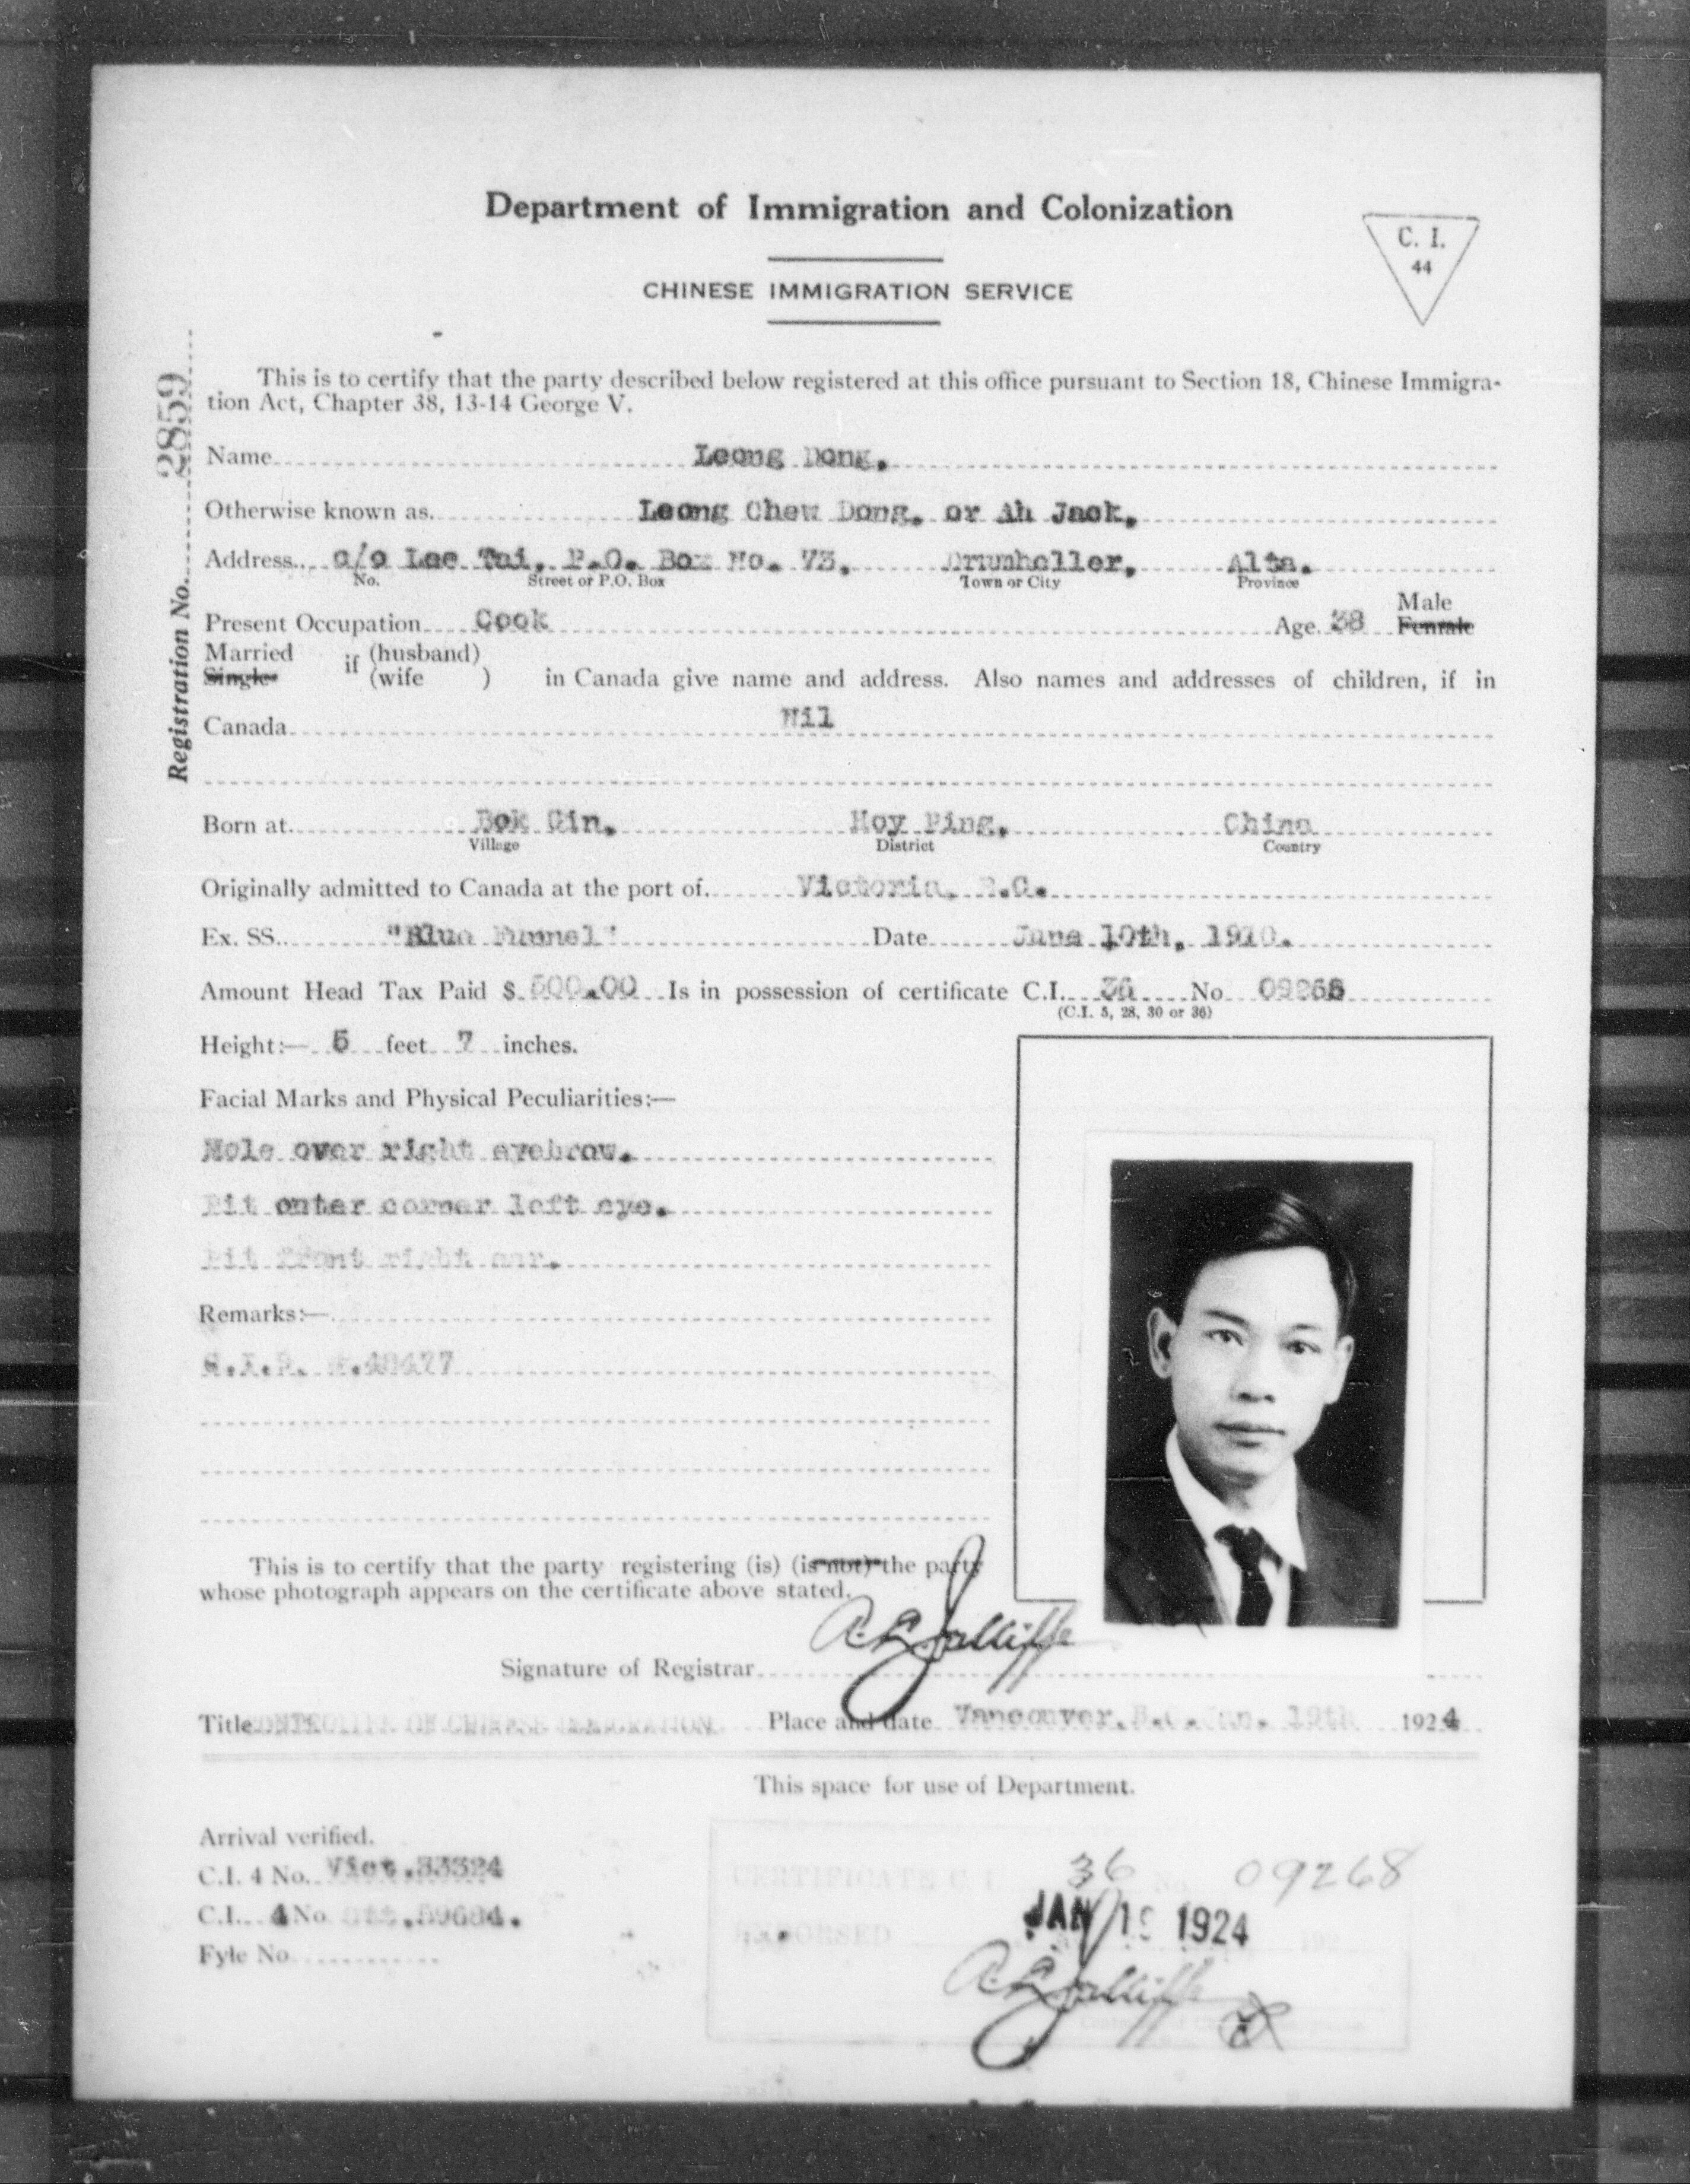 Department of Immigration and Colonization
C. I.
44
CHINESE IMMIGRATION SERVICE
Registration No. 2859
This is to certify that the party described below registered at this office pursuant to Section 18, Chinese Immigra-
tion Act, Chapter 38, 13-14 George V.
Name Leong Dong.
Otherwise known as. Leong Chew Dong, or Ah Jack.
Address. c/o Lee Tai, P.O. Box No. 73, Drumheller, Alta.
No. Street or P.O. Box Town or City Province
Male
Present Occupation Cook Age 38 Female
Married if (husband)
Single (wife ) in Canada give name and address. Also names and addresses of children, if in
Canada Nil
Born at. Bok Gin, Hoy Ping, China
Village District Country
Originally admitted to Canada at the port of. Victoria, B.C.
Ex. SS. "Blue Funnel" Date June 10th, 1910.
Amount Head Tax Paid $ 500.00 Is in possession of certificate C.I. 36 No 09268
(C.I. 5, 28, 30 or 36)
Height:— 5 feet 7 inches.
Facial Marks and Physical Peculiarities:—
Mole over right eyebrow.
Pit outer corner left eye.
Pit front right ear.
Remarks:—
This is to certify that the party registering (is) (is not) the party
whose photograph appears on the certificate above stated.
Signature of Registrar A. L. Jolliffe
Title CONTROLLER OF CHINESE IMMIGRATION Place and date Vancouver, B.C. Jan. 19th 1924
This space for use of Department.
Arrival verified.
C.I. 4 No. Vict. 33324
C.I. 4 No Ott. 59694.
Fyle No
CERTIFICATE C. I. 36 No. 09268
ENDORSED JAN 19 1924 192
A. L. Jolliffe